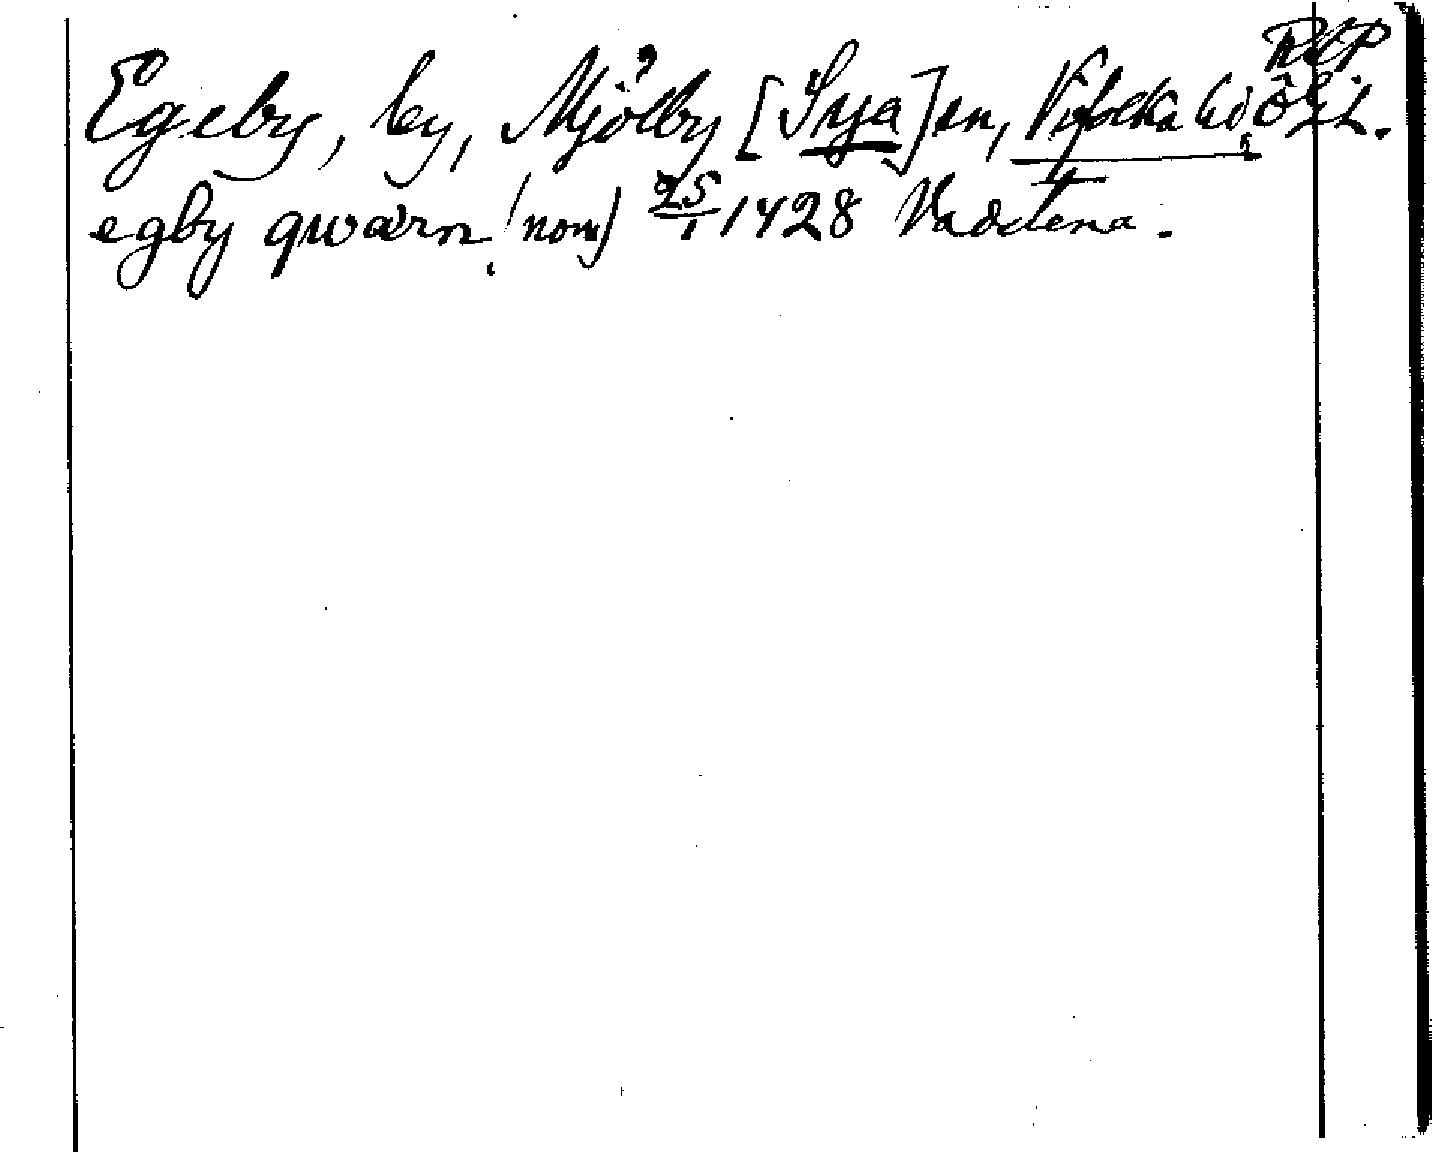 RAP
Egeby, by, Mjölby [Sya] sn, Vifolka hd, Ögötl.
egby qwærn (nom) 25/1 1428 Vadstena.